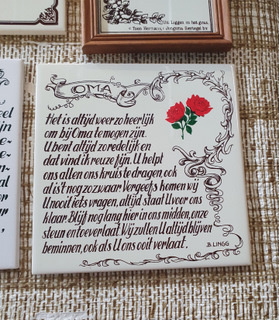 Wij liggen in het gras.
OMA
Het is altijd weer zo heerlijk
om bij Oma te mogen zijn.
U bent altijd zo redelijk en
dat vind ik reuze fijn. U helpt
ons allen ons kruis te dragen, ook
al is 't nog zo zwaar. Vergeefs komen wij
U nooit iets vragen, altijd staat U voor ons
klaar. Blijf nog lang hier in ons midden, onze
steun en toeverlaat. Wij zullen U altijd blijven
beminnen, ook als U ons ooit verlaat.
B. LINGG